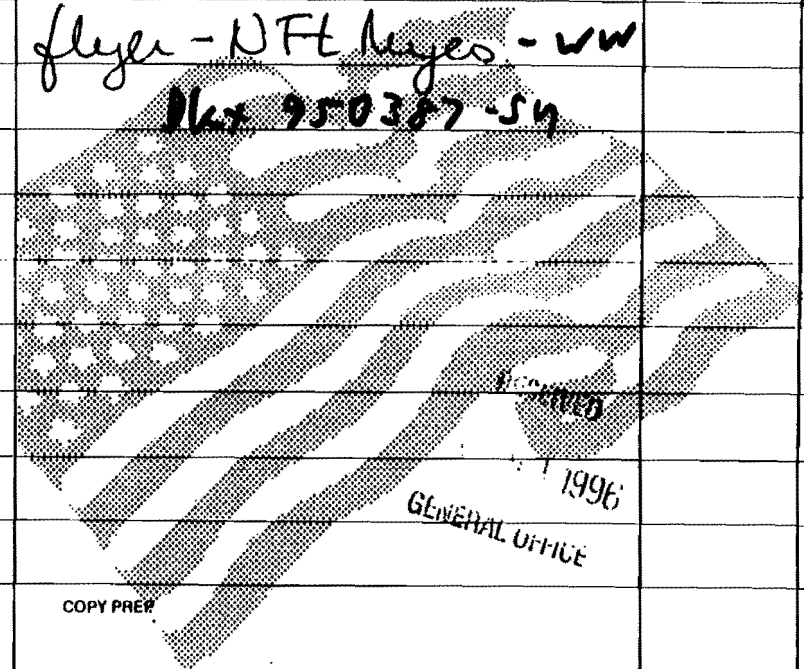 flyer - N Ft Myers - WW
Dkt 950387-SU
RECEIVED
1996
GENERAL OFFICE
COPY PREP